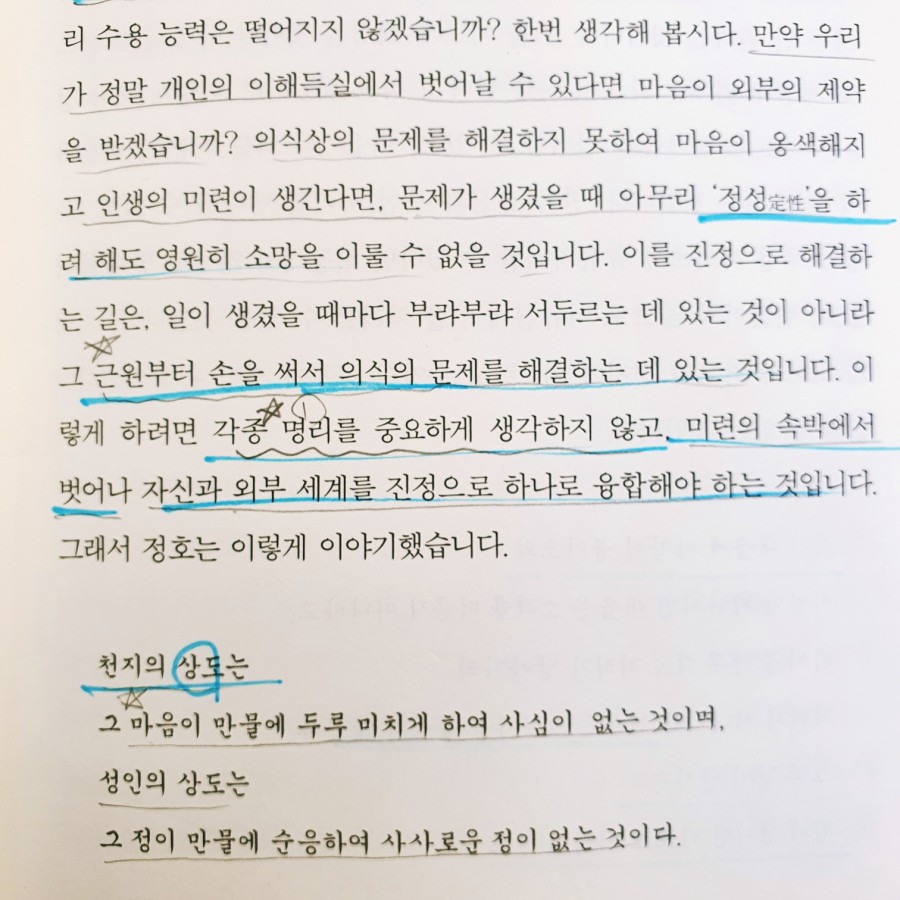 리 수용 능력은 떨어지지 않겠습니까? 한번 생각해 봅시다. 만약 우리
가 정말 개인의 이해득실에서 벗어날 수 있다면 마음이 외부의 제약
을 받겠습니까? 의식상의 문제를 해결하지 못하여 마음이 옹색해지
고 인생의 미련이 생긴다면, 문제가 생겼을 때 아무리 ‘정성定性’을 하
려 해도 영원히 소망을 이룰 수 없을 것입니다. 이를 진정으로 해결하
는 길은, 일이 생겼을 때마다 부랴부랴 서두르는 데 있는 것이 아니라
그 근원부터 손을 써서 의식의 문제를 해결하는 데 있는 것입니다. 이
렇게 하려면 각종 명리를 중요하게 생각하지 않고, 미련의 속박에서
벗어나 자신과 외부 세계를 진정으로 하나로 융합해야 하는 것입니다.
그래서 정호는 이렇게 이야기했습니다.
천지의 상도는
그 마음이 만물에 두루 미치게 하여 사심이 없는 것이며,
성인의 상도는
그 정이 만물에 순응하여 사사로운 정이 없는 것이다.